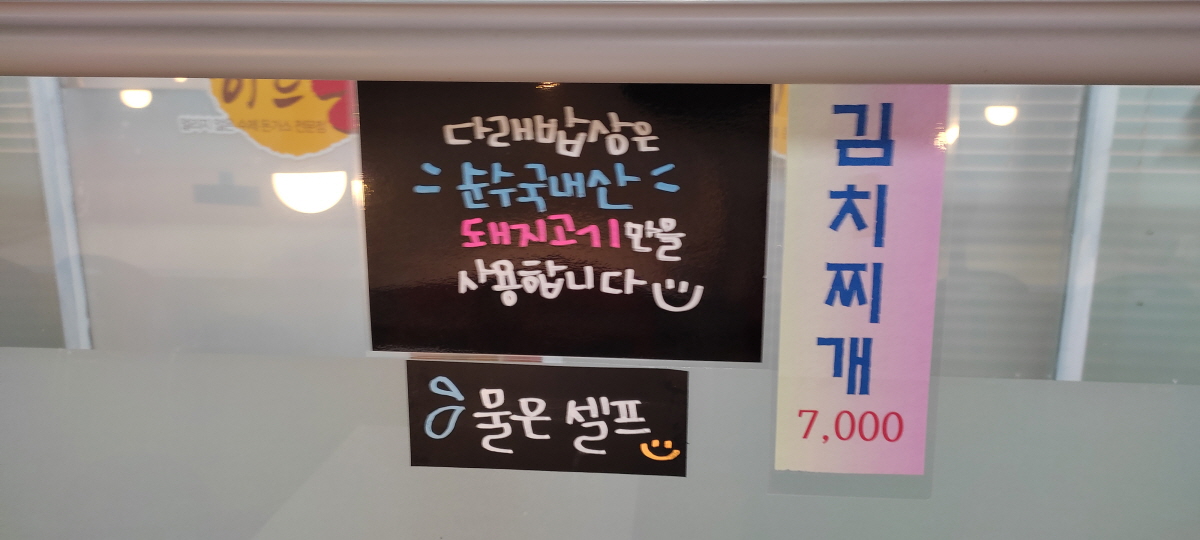 다래밥상은
순수국내산
돼지고기만을
사용합니다
물은 셀프
김치찌개
7,000
수제 돈가스 전문점